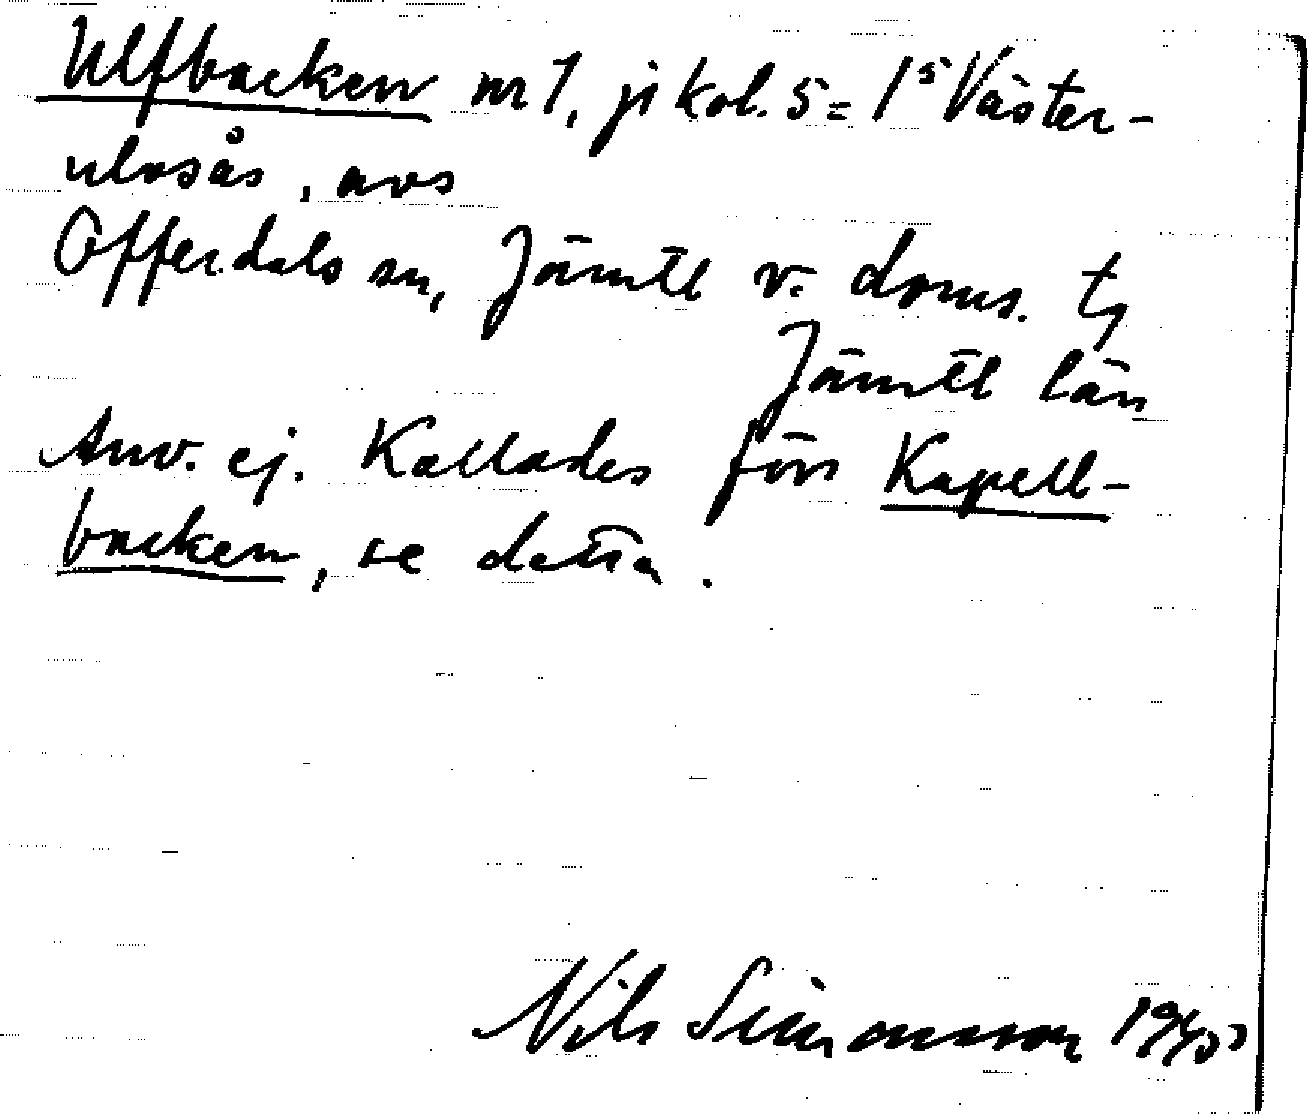 Ulfbacken nr 1, ji kol. 5 = 1⁵ Väster-
ulvsås, avs
Offerdals sn, Jämtl v. doms. tg
Jämtl län
Anv. ej. Kallades förs Kapell-
backen, se detta.
Nils Simonsson